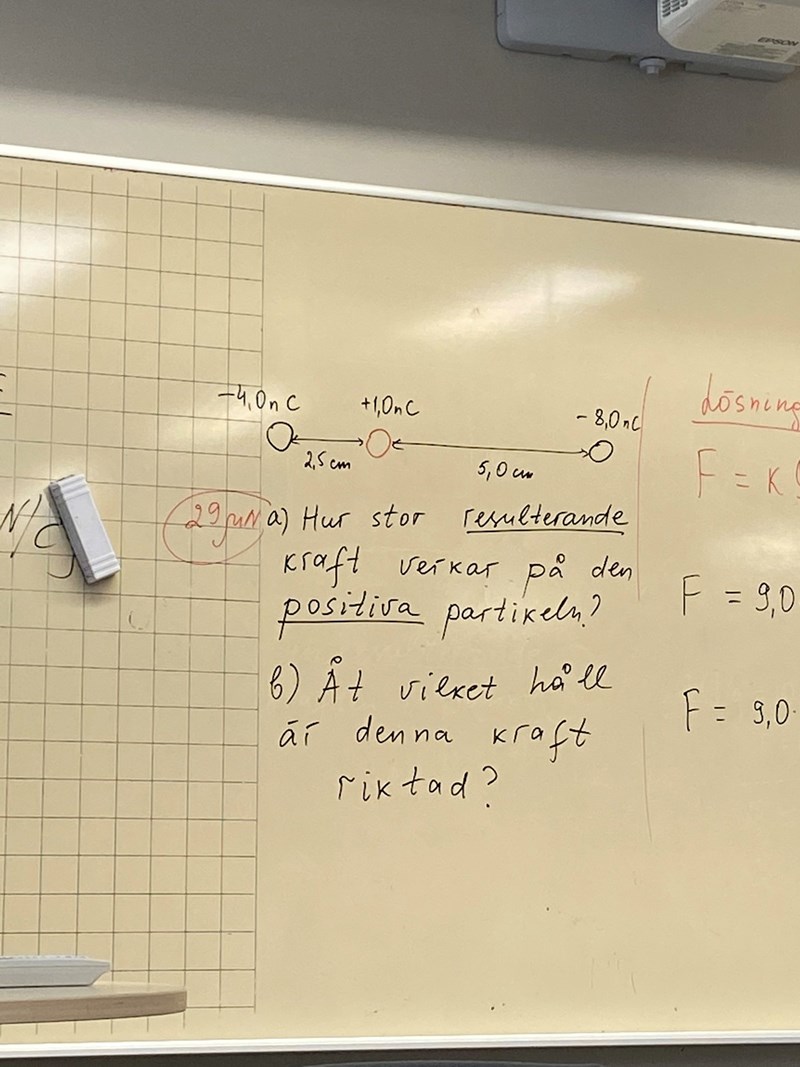 EPSON
-4,0nC +1,0nC -8,0nC
2,5 cm 5,0 cm
29 μN a) Hur stor resulterande
kraft verkar på den
positiva partikeln?
b) Åt vilket håll
är denna kraft
riktad?
N/C
Lösning
F = K
F = 9,0
F = 9,0·